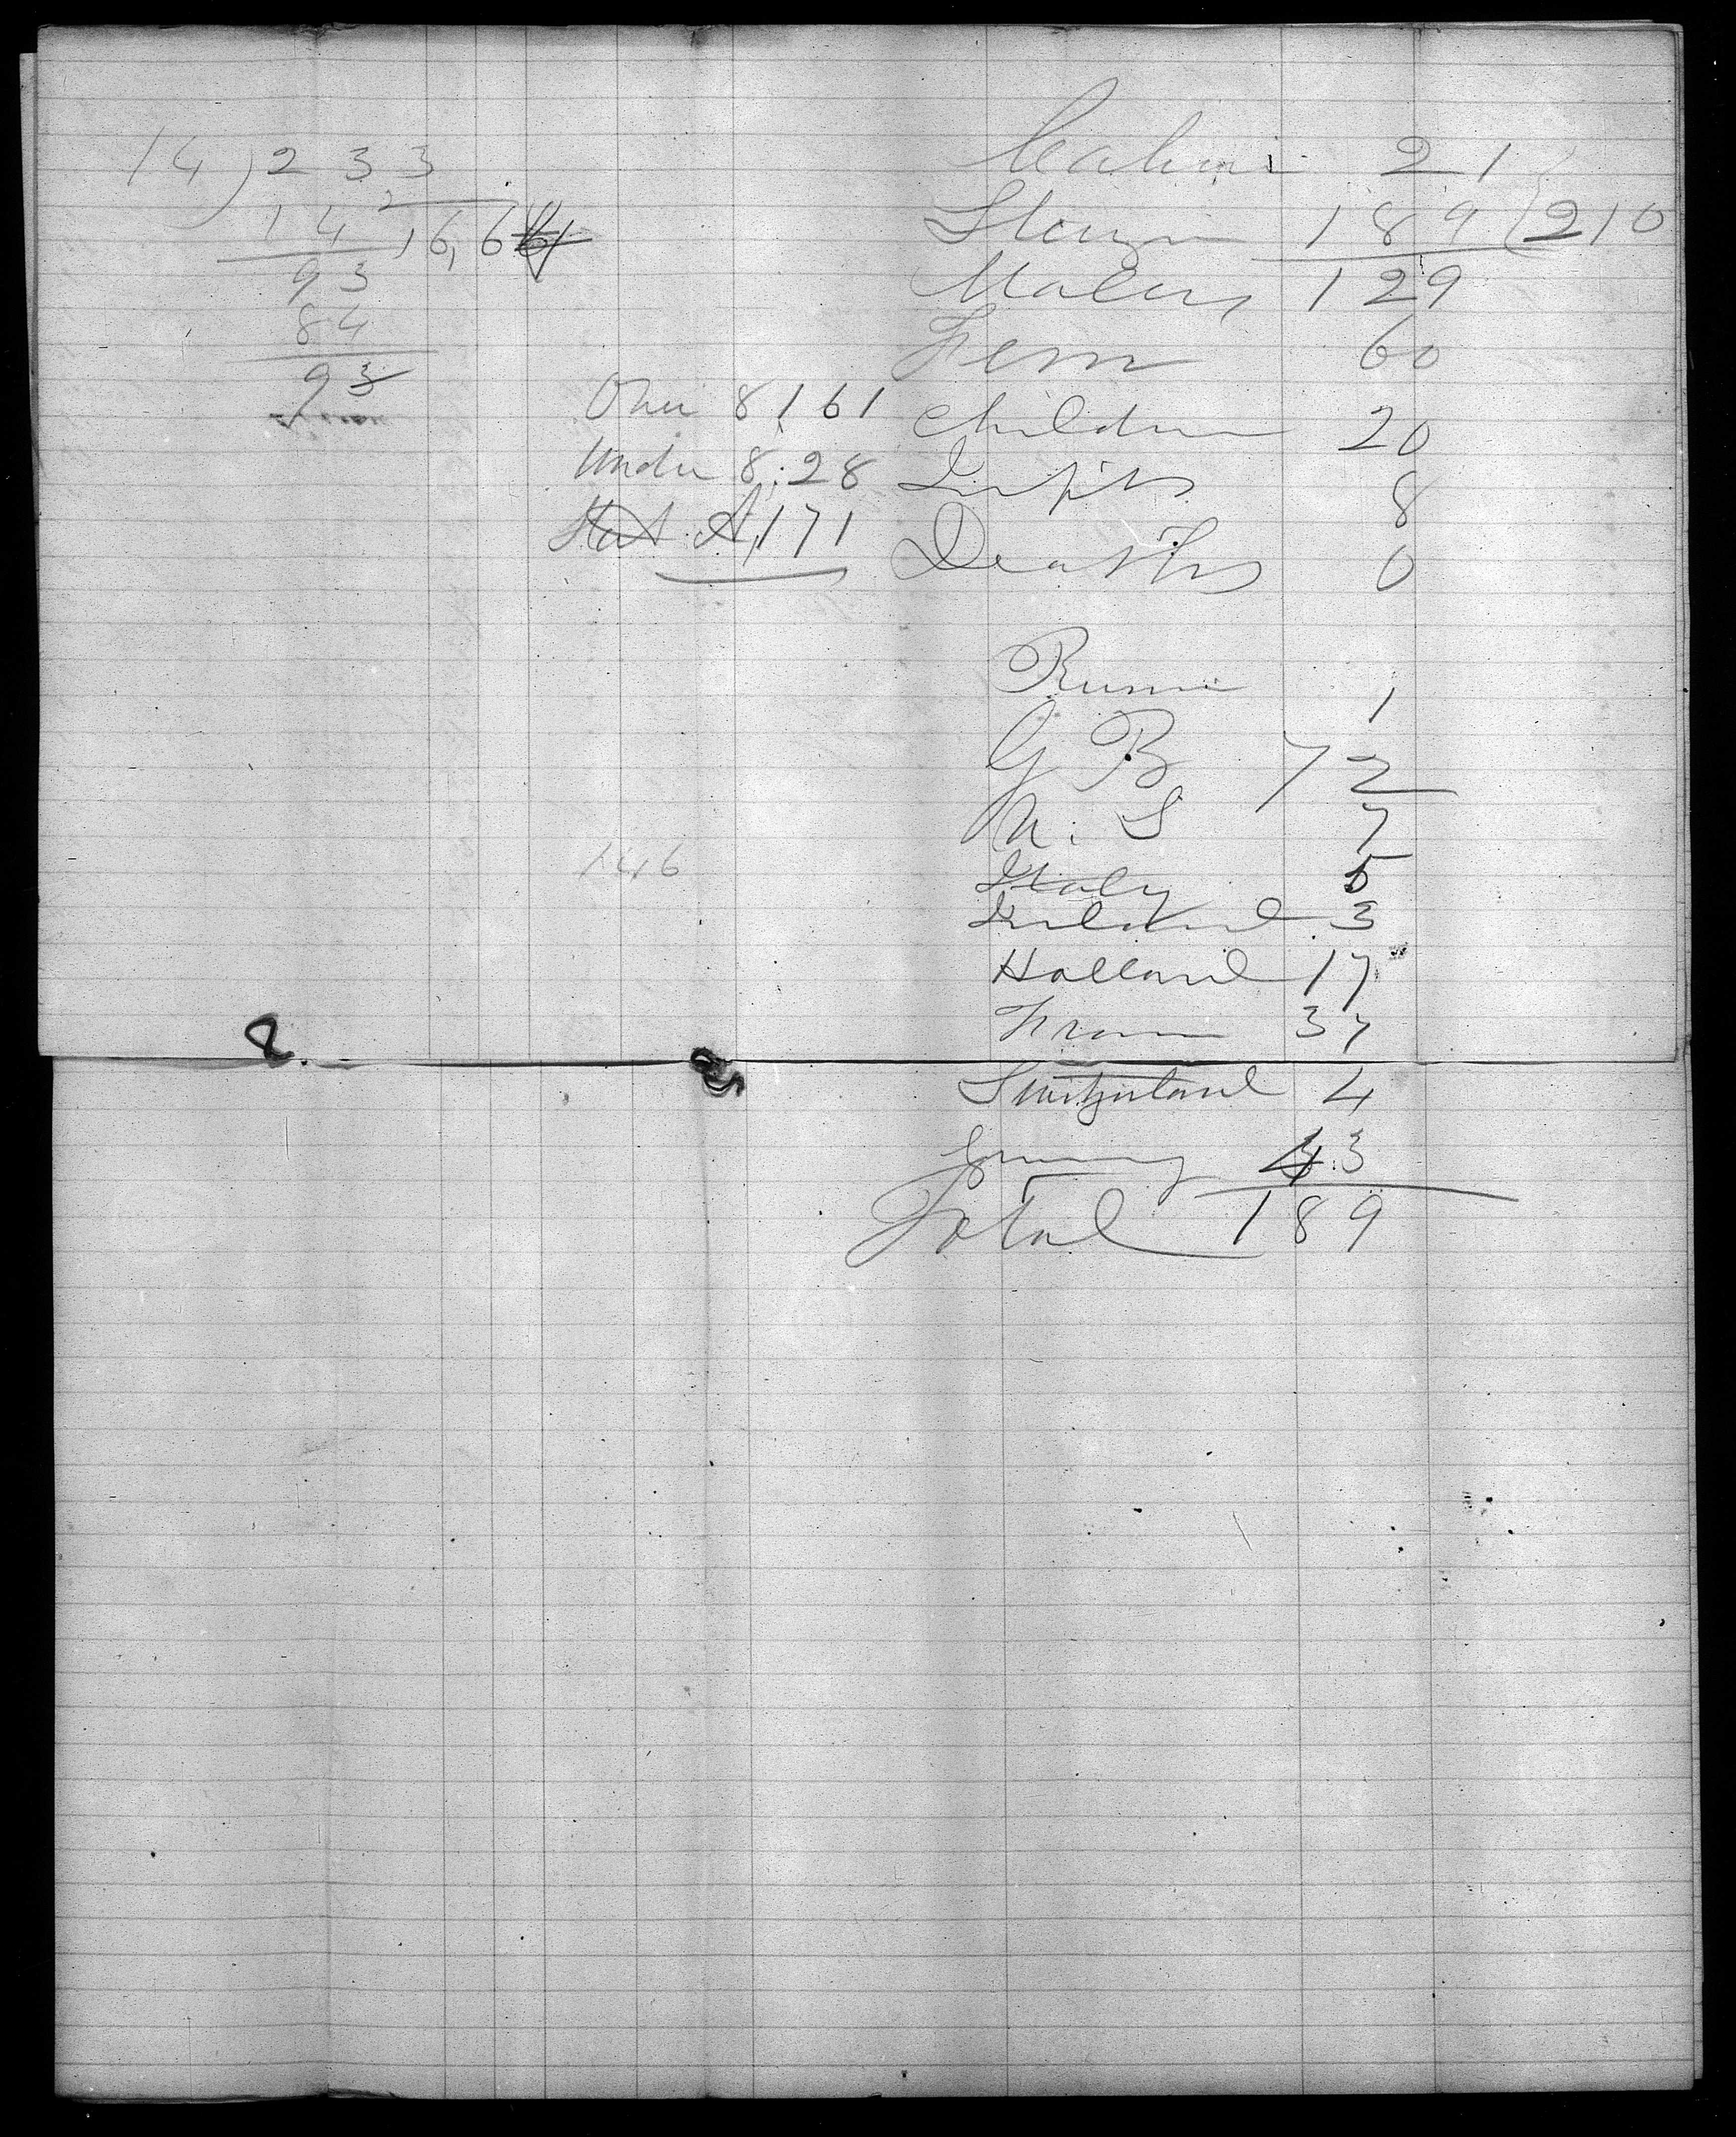 14 ) 233
14 16,66
93
84
93
Cabin 21
Steerage 189 210
Males 129
Fem 60
Over 8 161 Children 20
Under 8 28 Infts 8
Stat A 171 Deaths 0
Russia 1
G B 72
U. S 7
Italy 5
Ireland 3
Holland 17
146
France 37
Switzerland 4
Germany 43
Total 189